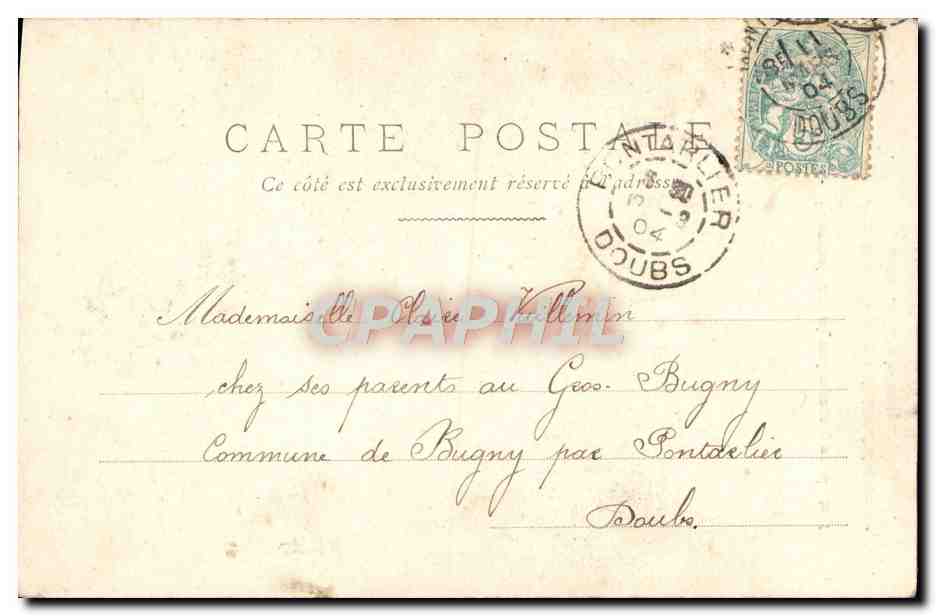 CARTE POSTALE
Ce côté est exclusivement réservé à l'adresse
PONTARLIER
DOUBS
04
11
04
DOUBS
POSTES
Mademoiselle Claire Vuillemin
chez ses parents au Gros-Bugny
Commune de Bugny par Pontarlier
Doubs.
CPAPHIL